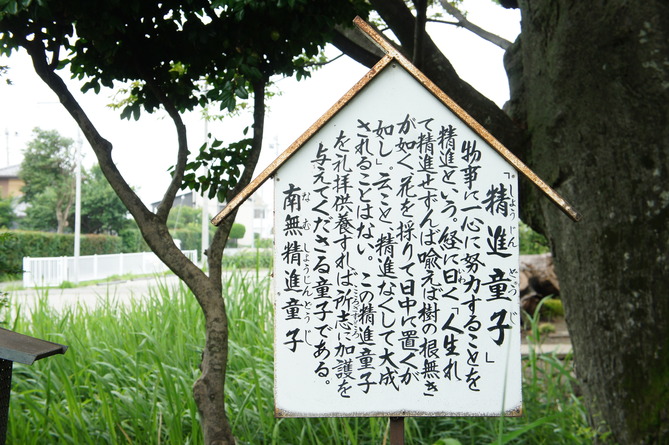 「精進童子」
しょうじん どうじ
物事に一心に努力することを
精進という。経に曰く「人生れ
て精進せずんば喩えば樹の根無き
が如く、花を採りて日中に置くが
如し」云こと、精進なくして大成
されることはない。この精進童子
を礼拝供養すれば所志に加護を
与えてくださる童子である。
南無精進童子
なむしょうじんどうじ